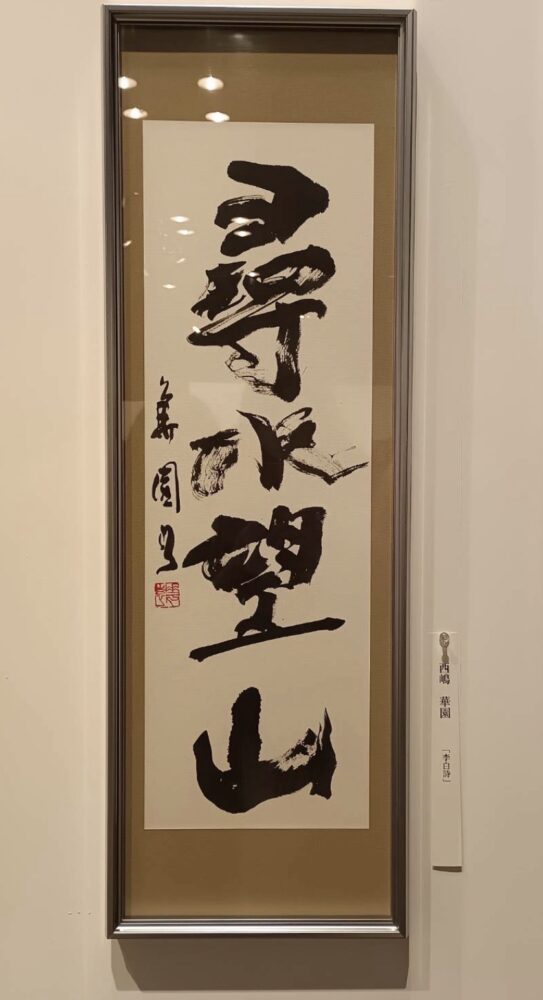 尋水望山
華園書
西嶋 華園
「李白詩」